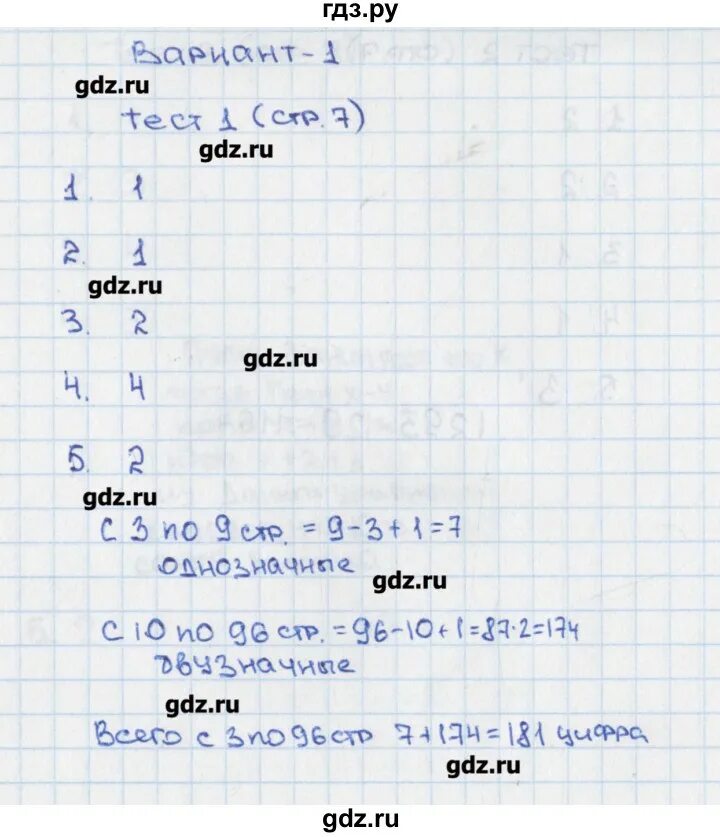 гдз.ру
Вариант-1
gdz.ru
тест 1 (стр. 7)
gdz.ru
1. 1
2. 1
gdz.ru
3. 2
gdz.ru
4. 4
5. 2
gdz.ru
С 3 по 9 стр. = 9-3+1=7
однозначные
gdz.ru
С 10 по 96 стр. = 96-10+1=87·2=174
двузначные
gdz.ru
Всего с 3 по 96 стр 7+174=181 цифра
gdz.ru
gdz.ru